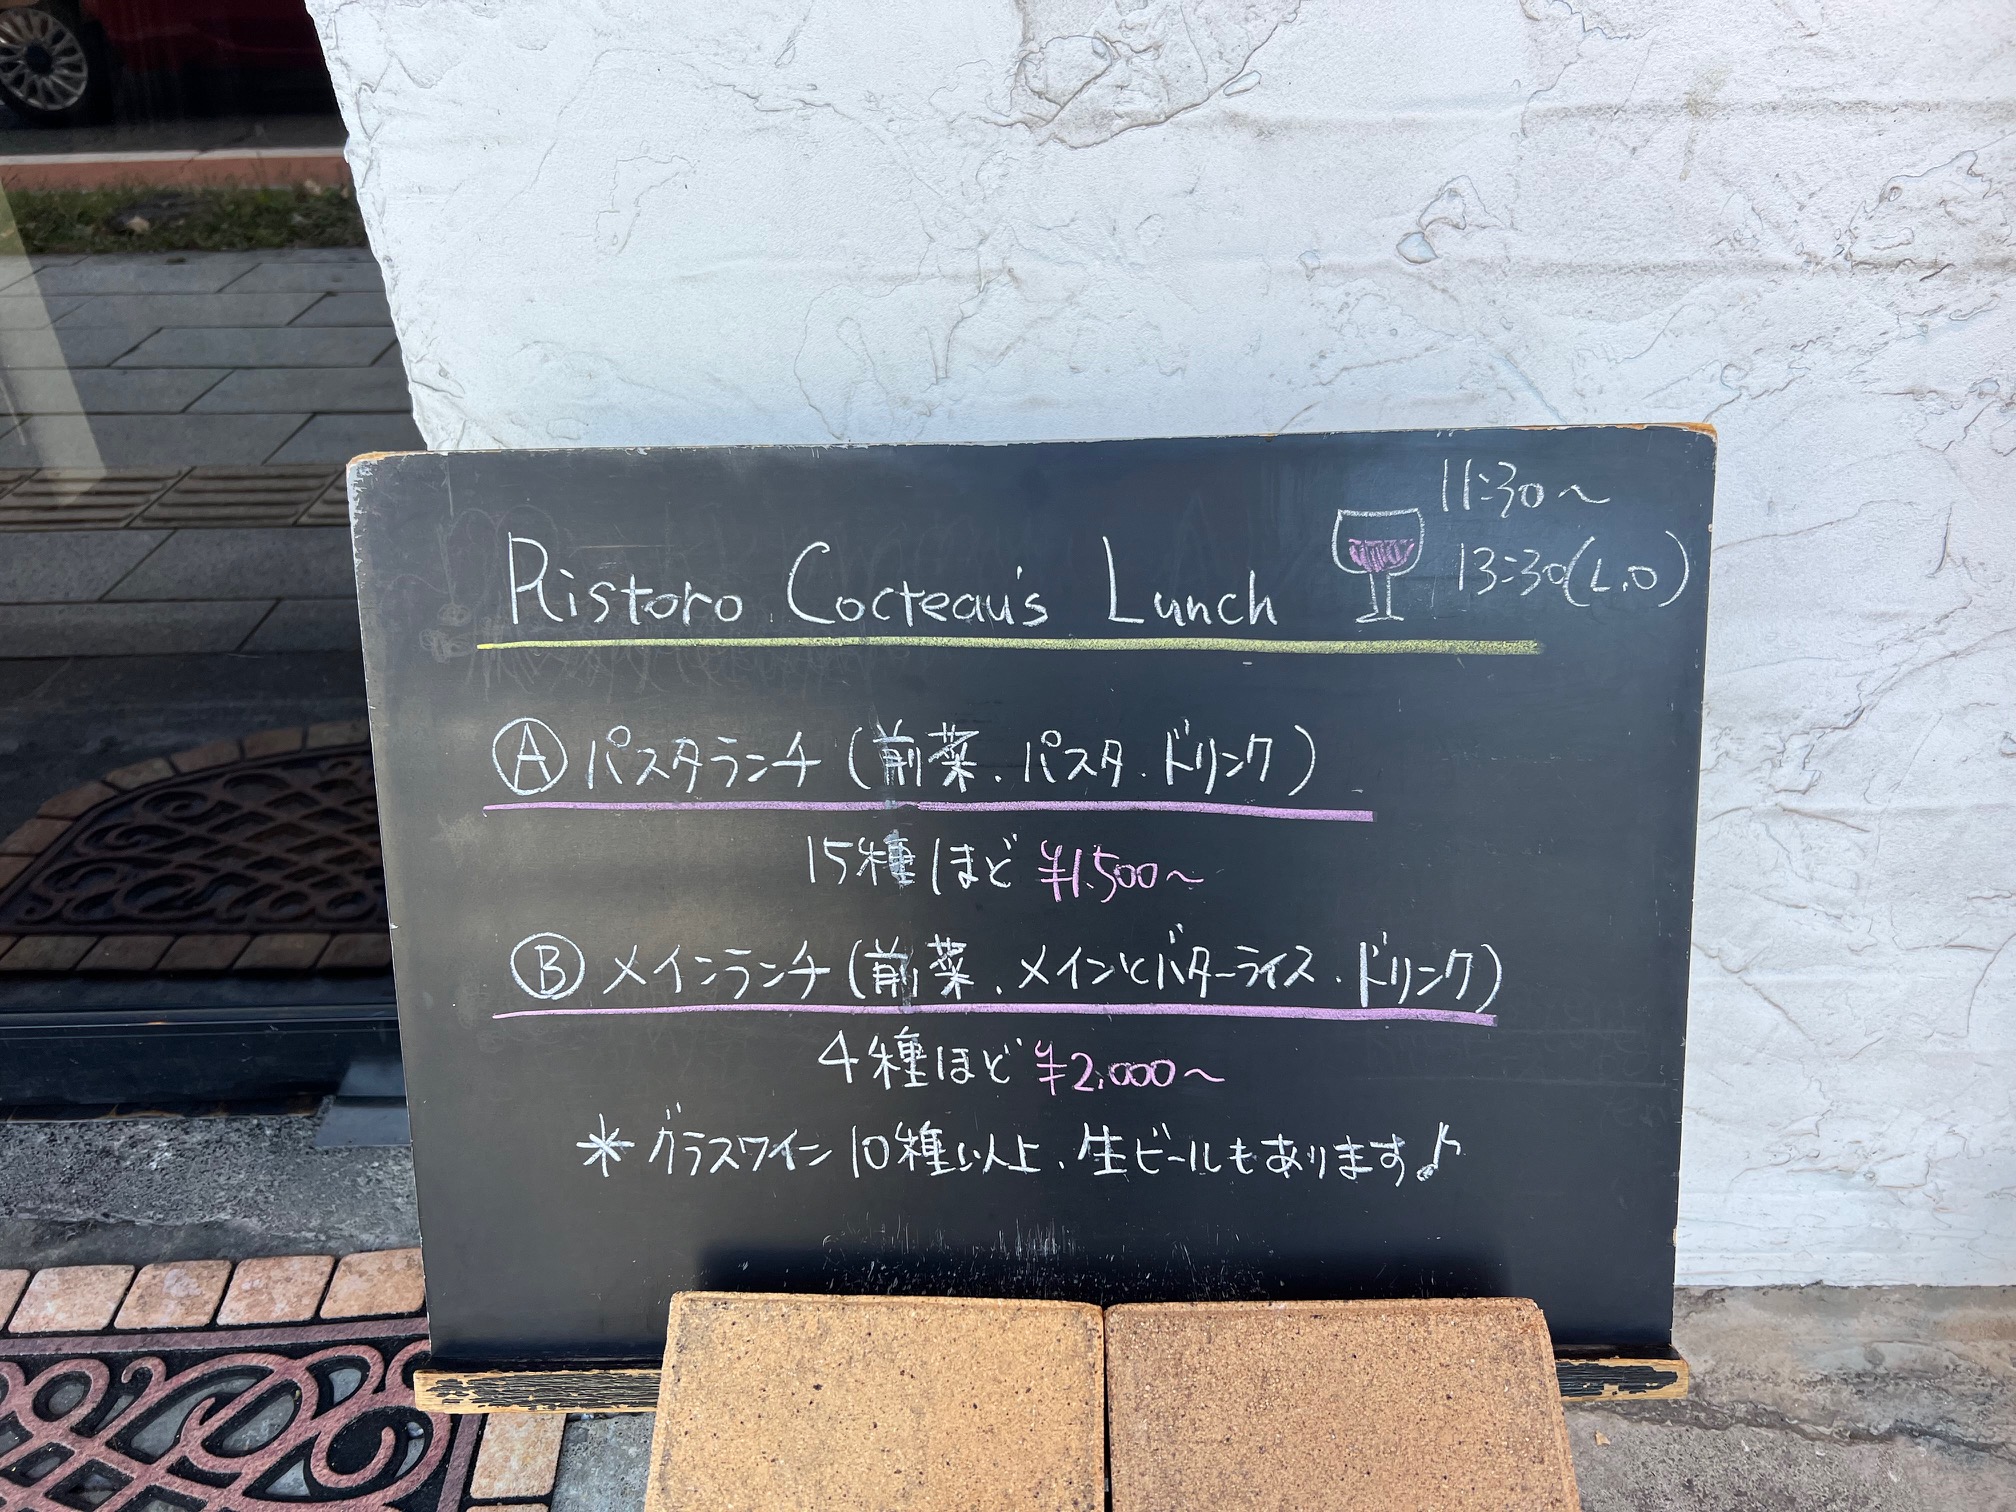 Ristoro Cocteau's Lunch
11:30〜
13:30(L.O)
Ⓐパスタランチ(前菜、パスタ・ドリンク)
15種ほど ¥1,500〜
Ⓑメインランチ(前菜、メインとバターライス・ドリンク)
4種ほど ¥2,000〜
*グラスワイン10種以上、生ビールもあります♪